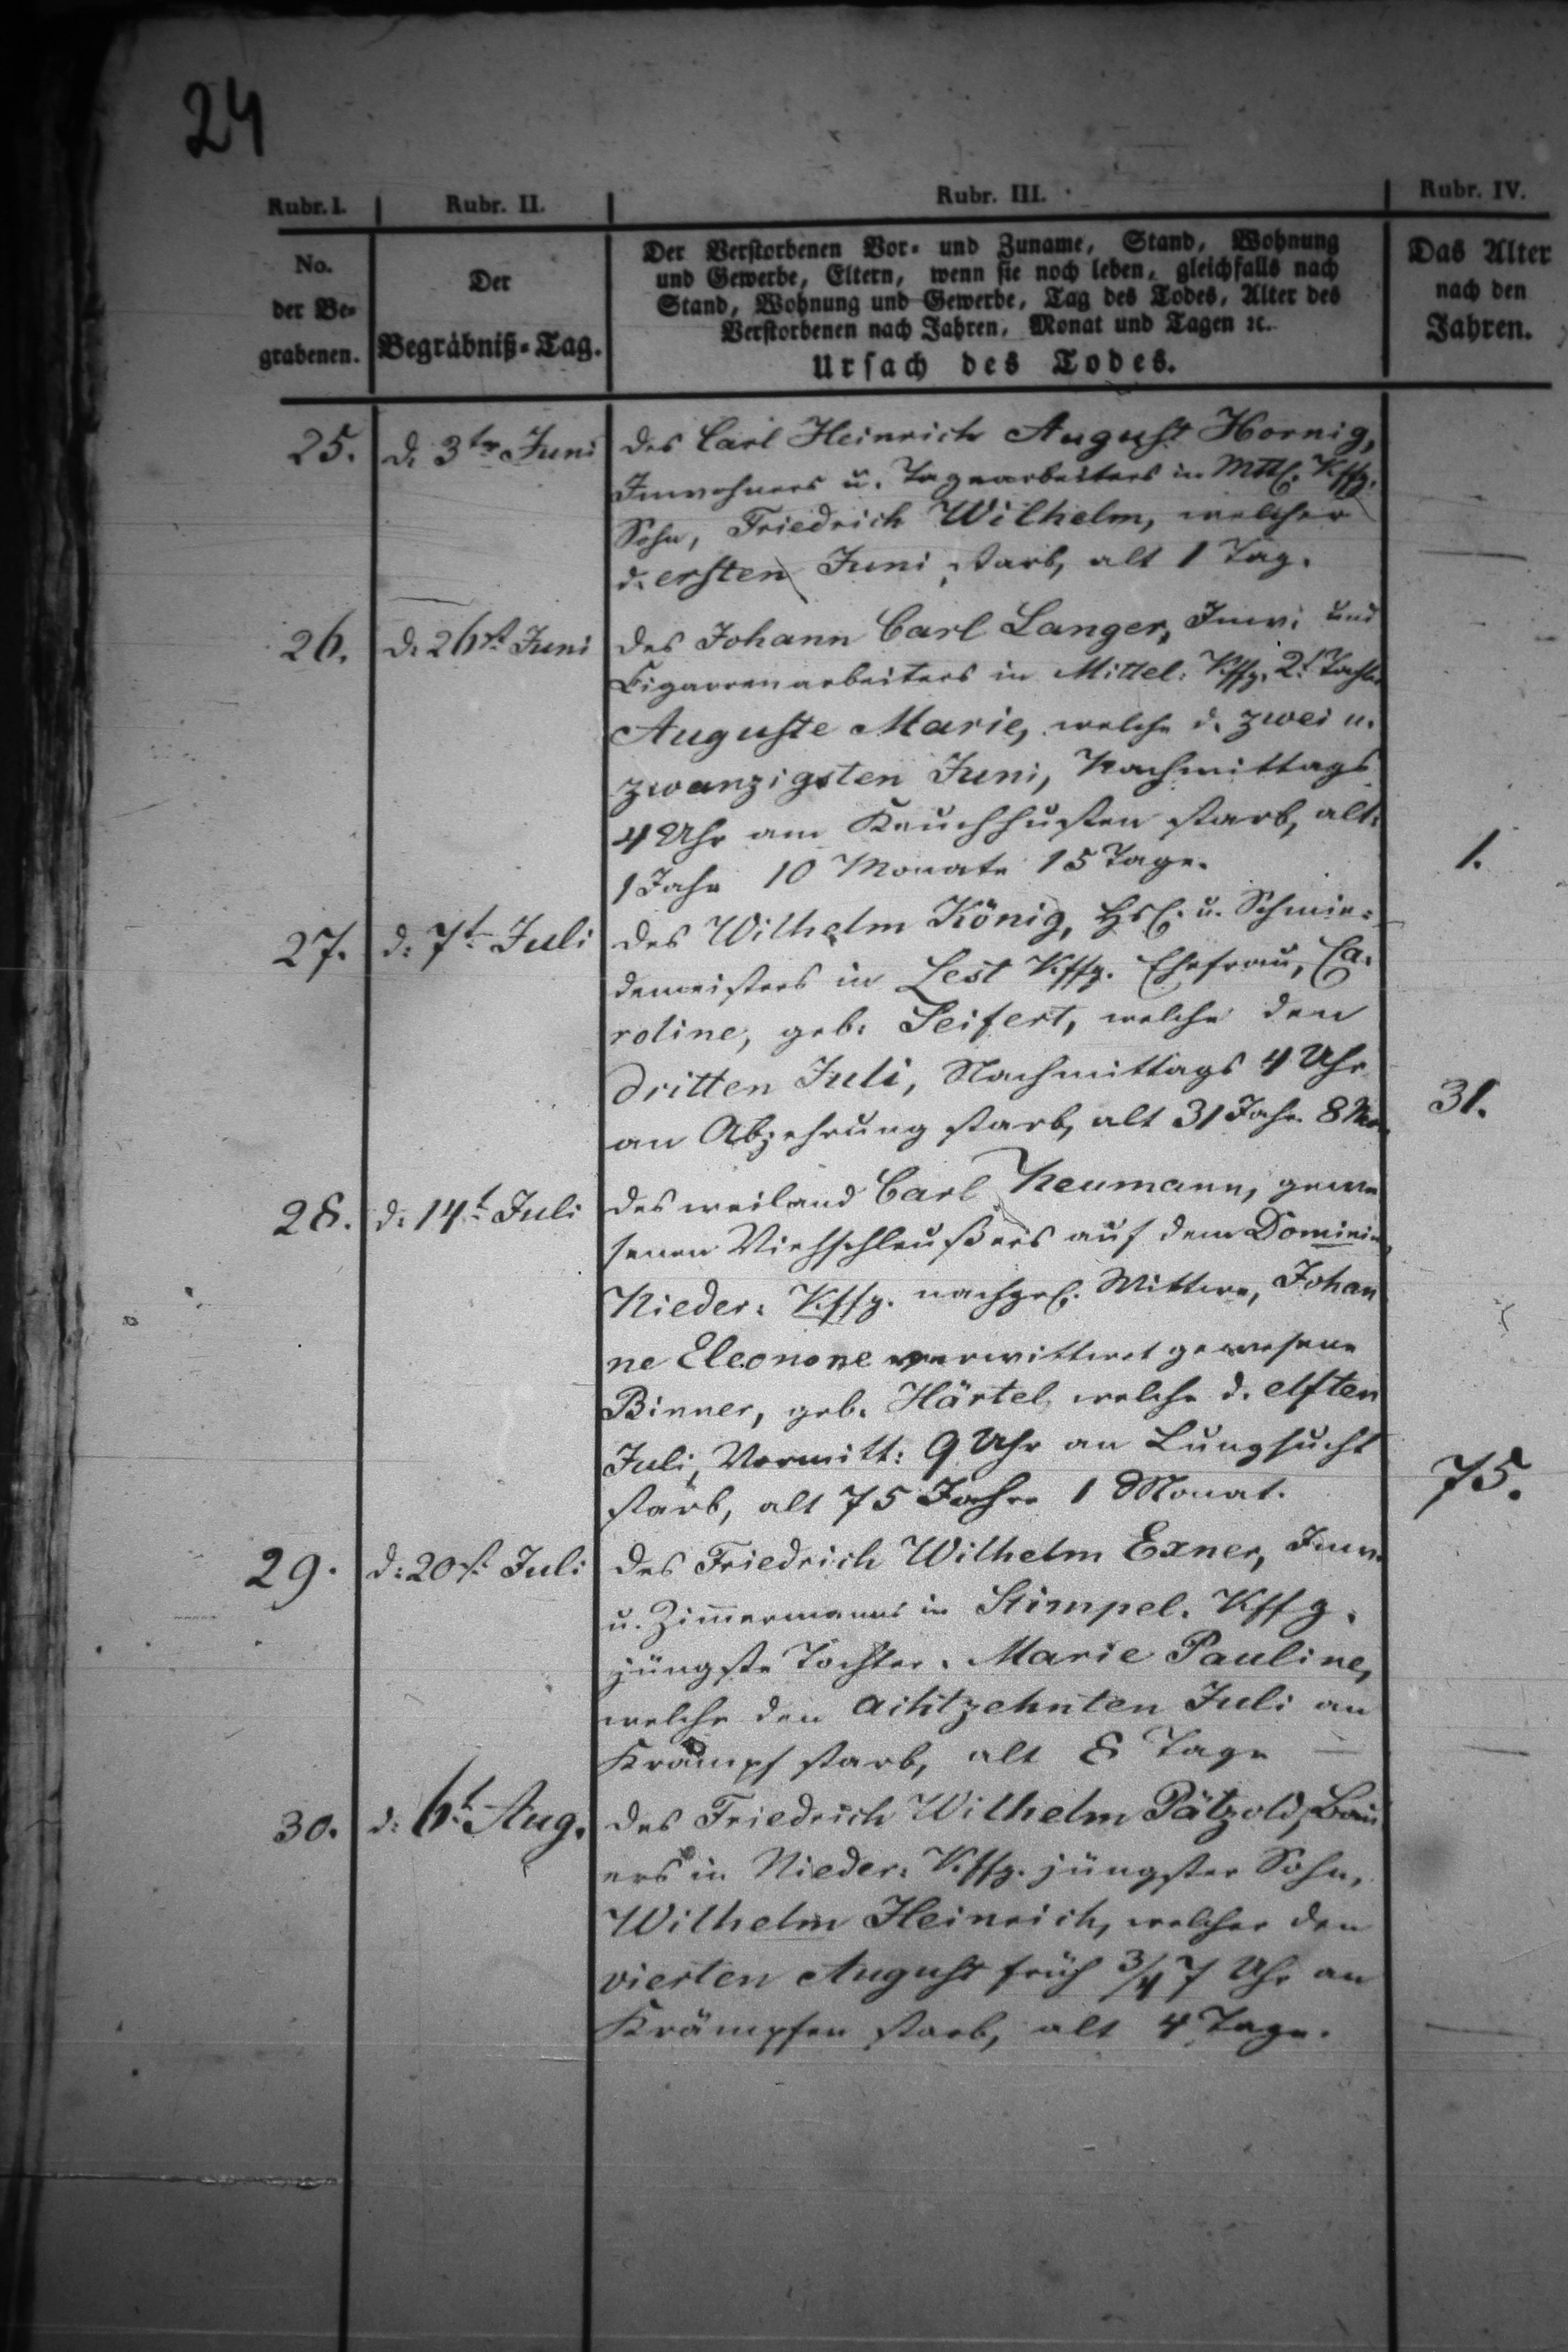 24
Rubr. I. Rubr. II. Rubr. III. Rubr. IV.
No. der Be-grabenen.
Der Begräbniß-Tag.
Der Verstorbenen Vor- und Zuname, Stand, Wohnung
und Gewerbe, Eltern, wenn sie noch leben, gleichfalls nach
Stand, Wohnung und Gewerbe, Tag des Todes, Alter des
Verstorbenen nach Jahren, Monat und Tagen ꝛc.
Ursach des Todes.
Das Alter
nach den
Jahren.
25. d. 3ten Juni des Carl Heinrich August Hornig,
Inwohners u. Tagearbeiters in Mttl. Kffg.
Sohn, Friedrich Wilhelm, welcher
d. ersten Juni starb, alt 1 Tag. —
26. d. 26st Juni des Johann Carl Langer, Inw. und
Cigarrenarbeiters in Mittel: Kffg. 2t Tochter
Auguste Marie, welche d. zwei u.
zwanzigsten Juni, Nachmittags
4 Uhr am Keuchhusten starb, alt:
1 Jahr 10 Monate 15 Tage. 1.
27. d. 7t Juli des Wilhelm König, Hsl. u. Schmie-
demeisters in Lest Kffg. Ehefrau, Ca-
roline, geb. Seifert, welche den
dritten Juli, Nachmittags 4 Uhr
an Abzehrung starb, alt 31 Jahr 8 Mon. 31.
28. d. 14t Juli des weiland Carl Neumann, gewe
senen Viehschleußers auf dem Dominio
Nieder: Kffg. nachgel. Wittwe, Johan
ne Eleonore verwittwet gewesene
Binner, geb. Härtel, welche d. elften
Juli, Vormitt: 9 Uhr an Lungsucht
starb, alt 75 Jahre 1 Monat. 75.
29. d: 20st Juli des Friedrich Wilhelm Exner, Inw.
u. Zimmermanns in Stimpel. Kffg.
jüngste Tochter. Marie Pauline,
welche den achtzehnten Juli an
Krampf starb, alt 8 Tage — —
30. d: 6t Aug. des Friedrich Wilhelm Pätzold, Bau
ers in Nieder: Kffg. jüngster Sohn,
Wilhelm Heinrich, welcher den
vierten August früh 3/4 7 Uhr an
Krämpfen starb, alt 4 Tage. —